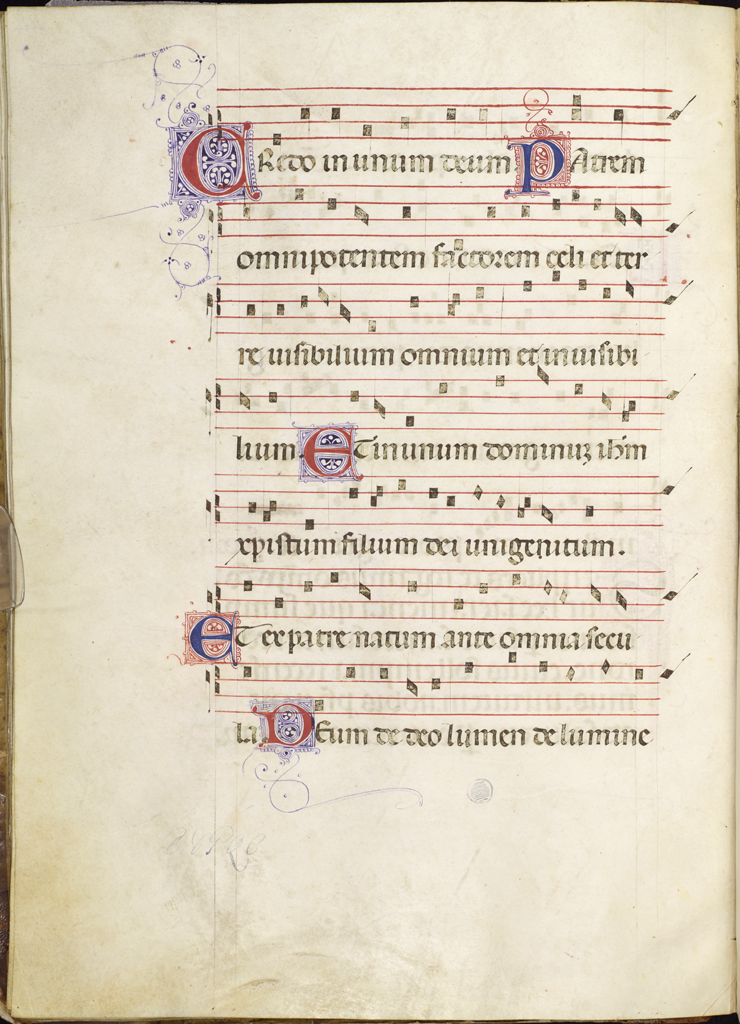 CRedo in unum deum PAtrem
omnipotentem factorem celi et ter
re uisibilium omnium et inuisibi
lium ETin unum dominuʒ ihm̄
xpistum filium dei unigenitum.
ET ex patre natum ante omnia secu
la DEum de deo lumen de lumine